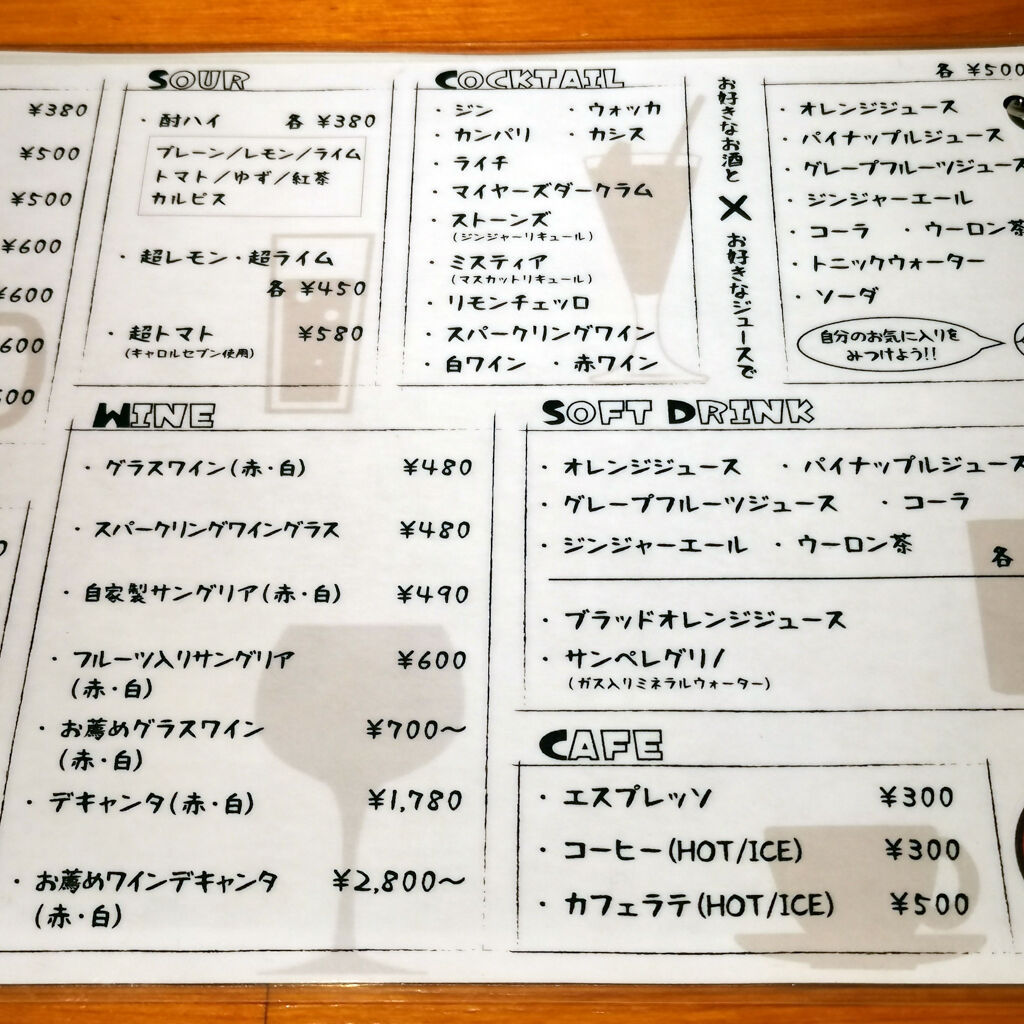 ¥380
¥500
¥500
¥600
¥600
SOUR
・酎ハイ 各 ¥380
プレーン/レモン/ライム
トマト/ゆず/紅茶
カルピス
・超レモン・超ライム
各 ¥450
・超トマト ¥580
(キャロルセブン使用)
COCKTAIL
・ジン ・ウォッカ
・カンパリ ・カシス
・ライチ
・マイヤーズダークラム
・ストーンズ
(ジンジャーリキュール)
・ミスティア
(マスカットリキュール)
・リモンチェッロ
・スパークリングワイン
・白ワイン ・赤ワイン
お好きなお酒と
×
お好きなジュースで
各 ¥500
・オレンジジュース
・パイナップルジュース
・グレープフルーツジュース
・ジンジャーエール
・コーラ ・ウーロン茶
・トニックウォーター
・ソーダ
自分のお気に入りを
みつけよう!!
WINE
・グラスワイン(赤・白) ¥480
・スパークリングワイングラス ¥480
・自家製サングリア(赤・白) ¥490
・フルーツ入りサングリア ¥600
(赤・白)
・お薦めグラスワイン ¥700〜
(赤・白)
・デキャンタ(赤・白) ¥1,780
・お薦めワインデキャンタ ¥2,800〜
(赤・白)
SOFT DRINK
・オレンジジュース ・パイナップルジュース
・グレープフルーツジュース ・コーラ
・ジンジャーエール ・ウーロン茶
各
・ブラッドオレンジジュース
・サンペレグリノ
(ガス入りミネラルウォーター)
CAFE
・エスプレッソ ¥300
・コーヒー(HOT/ICE) ¥300
・カフェラテ(HOT/ICE) ¥500